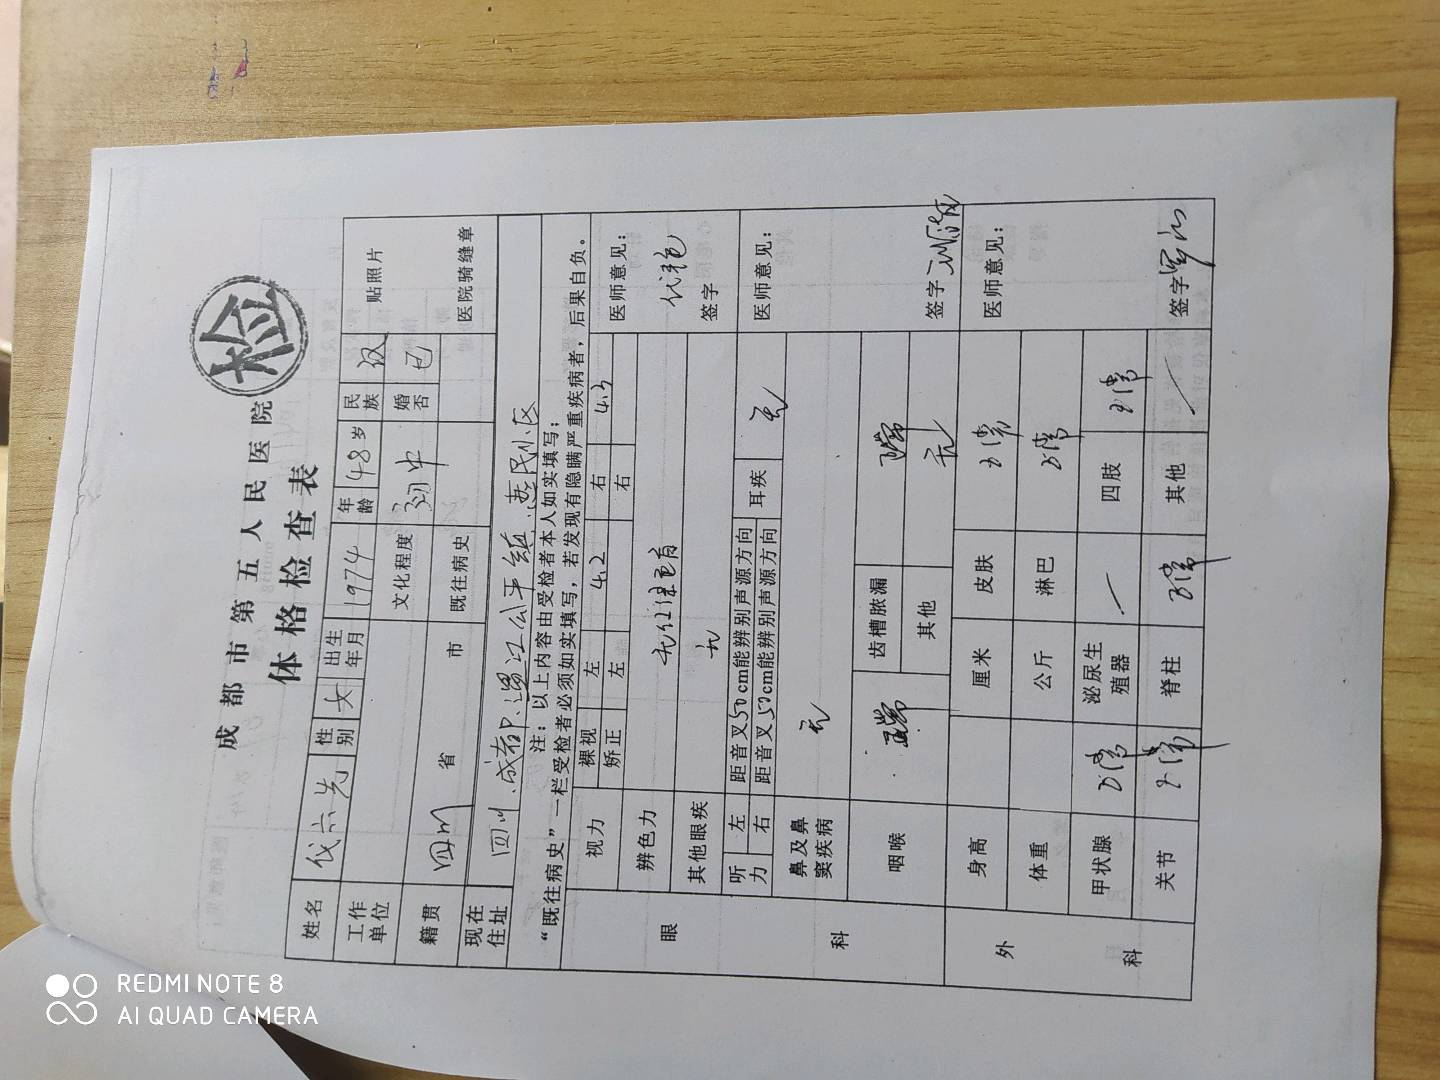 成都市第五人民医院
体格检查表
检
姓名 性别 女 出生年月 1974 年龄 48岁 民族 汉 贴照片
工作单位 文化程度 初中 婚否 已
籍贯 四川 省 市 既往病史 医院骑缝章
现在住址 四川.成都.温江公平镇.惠民小区
注：以上内容由受检者本人如实填写；
“既往病史”一栏受检者必须如实填写，若发现有隐瞒严重疾病者，后果自负。
眼科 视力 裸视 左 4.2 右 4.3 医师意见：
矫正 左 右
辨色力
其他眼疾 无 签字
听力 左 距音叉50cm能辨别声源方向 耳疾 无 医师意见：
右 距音叉50cm能辨别声源方向
鼻及鼻窦疾病 无
咽喉 正常 齿槽脓漏 正常
其他 无 签字
外科 身高 厘米 皮肤 正常 医师意见：
体重 公斤 淋巴 正常
甲状腺 正常 泌尿生殖器 四肢 正常
关节 正常 脊柱 正常 其他 签字
REDMI NOTE 8
AI QUAD CAMERA